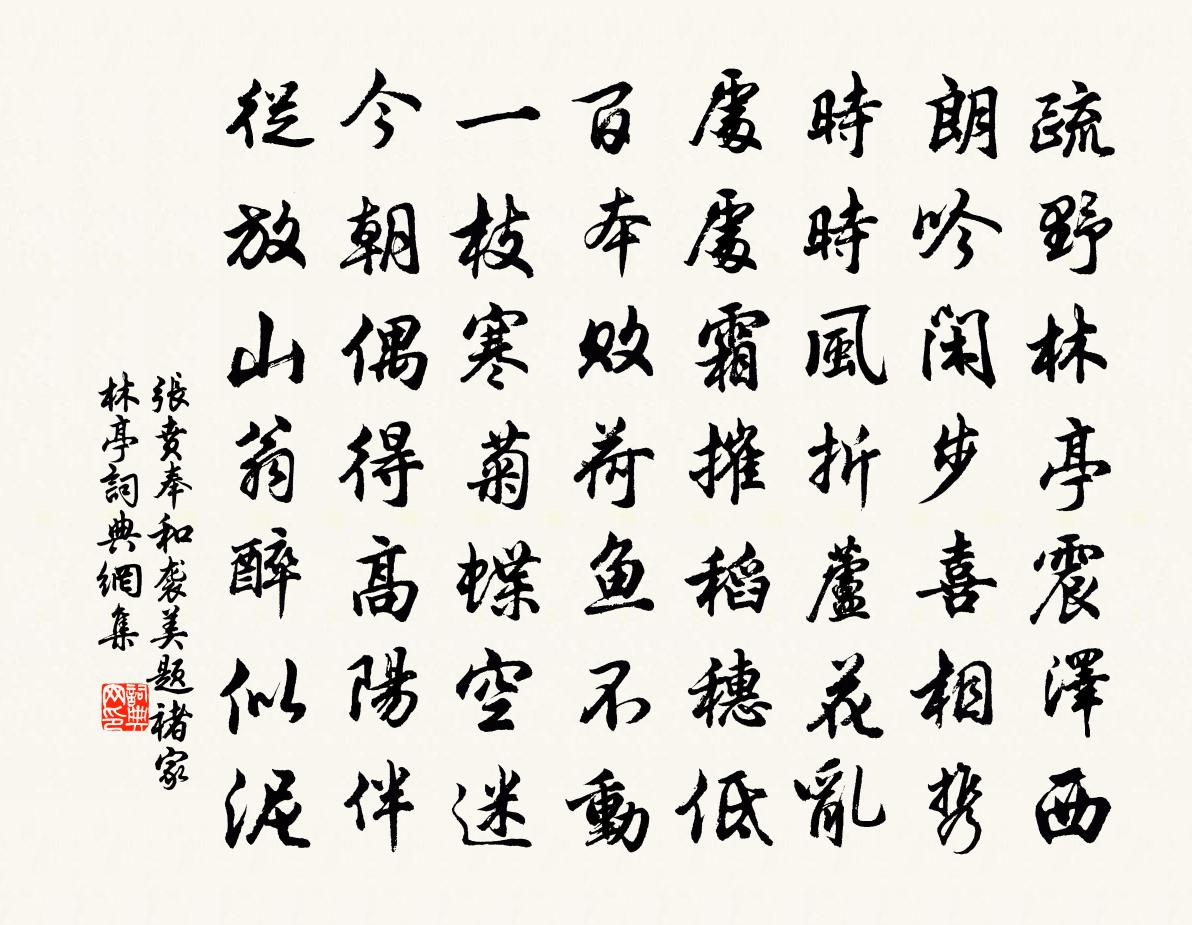 疏野林亭震澤西
朗吟閑步喜相携
時時風折蘆花亂
處處霜摧稻穗低
百本敗荷魚不動
一枝寒菊蝶空迷
今朝偶得高陽伴
從放山翁醉似泥
張賁奉和袭美題褚家
林亭詞典網集
詞典网印